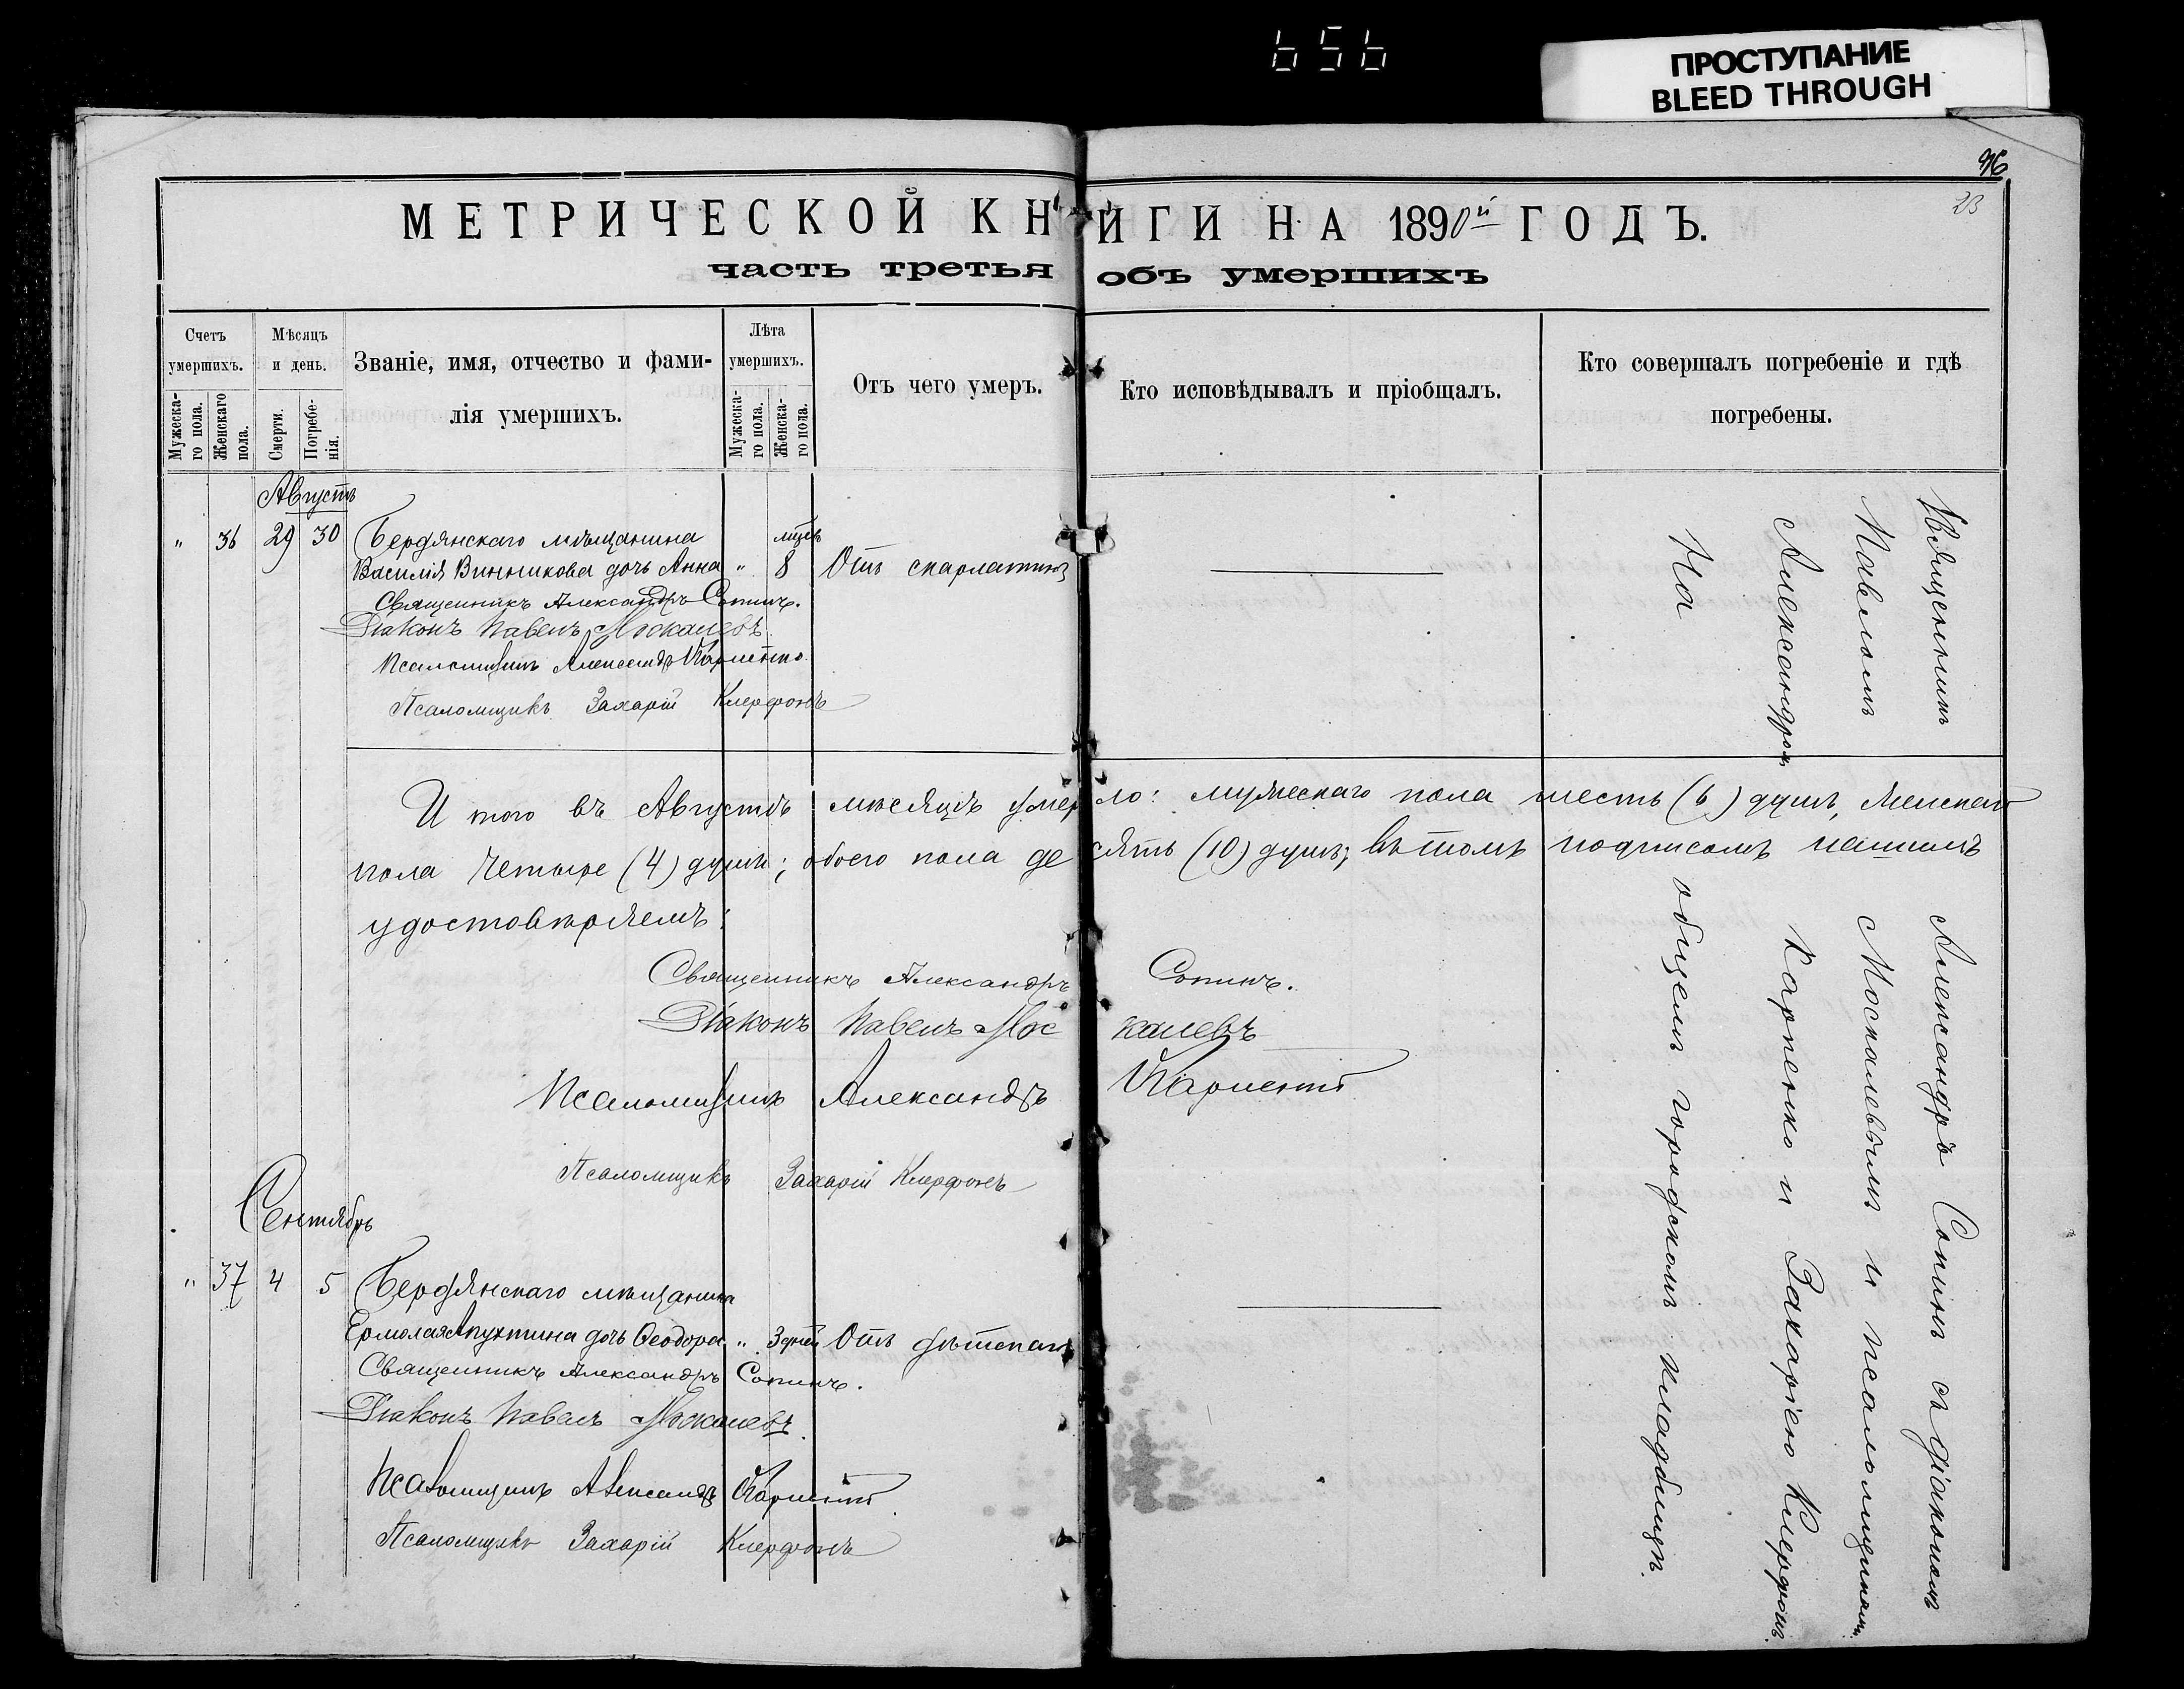 656
ПРОСТУПАНИЕ
BLEED THROUGH
96
23
МЕТРИЧЕСКОЙ КНИГИ НА 1890й ГОДЪ.
часть третья объ умершихъ
Счетъ умершихъ.
Мужеска-го пола.
Женскаго пола.
Мѣсяцъ и день.
Смерти.
Погребе-нія.
Званіе, имя, отчество и фами-
лія умершихъ.
Лѣта умершихъ.
Мужеска-го пола.
Женска-го пола.
Отъ чего умеръ.
Кто исповѣдывалъ и пріобщалъ.
Кто совершалъ погребеніе и гдѣ
погребены.
Августъ
" 36 29 30 Бердянскаго мѣщанина
Василія Винникова дочь Анна " 8 мцевъ Отъ скарлатины
Священникъ Александръ Сопинъ.
Діаконъ Павелъ Москалевъ
Псаломщикъ Александръ Карпенко
Псаломщикъ Захарій Клерфонъ
И того въ Августѣ мѣсяцѣ умерло: мужескаго пола шесть (6) душъ, женскаго
пола четыре (4) души; обоего пола десять (10) душъ; въ томъ подписомъ нашимъ
удостовѣряемъ:
Священникъ Александръ Сопинъ.
Діаконъ Павелъ Москалевъ
Псаломщикъ Александръ Карпенко
Псаломщикъ Захарій Клерфонъ
Сентябрь
" 37 4 5 Бердянскаго мѣщанина
Ермолая Апухтина дочь Ѳеодора " 3 дней Отъ дѣтской
Священникъ Александръ Сопинъ.
Діаконъ Павелъ Москалевъ
Псаломщикъ Александръ Карпенко
Псаломщикъ Захарій Клерфонъ
Священникъ Александръ Сопинъ съ діакономъ
Павломъ Москалевымъ и псаломщиками
Александромъ Карпенко и Захаріею Клерфонъ.
На общемъ городскомъ кладбищѣ.